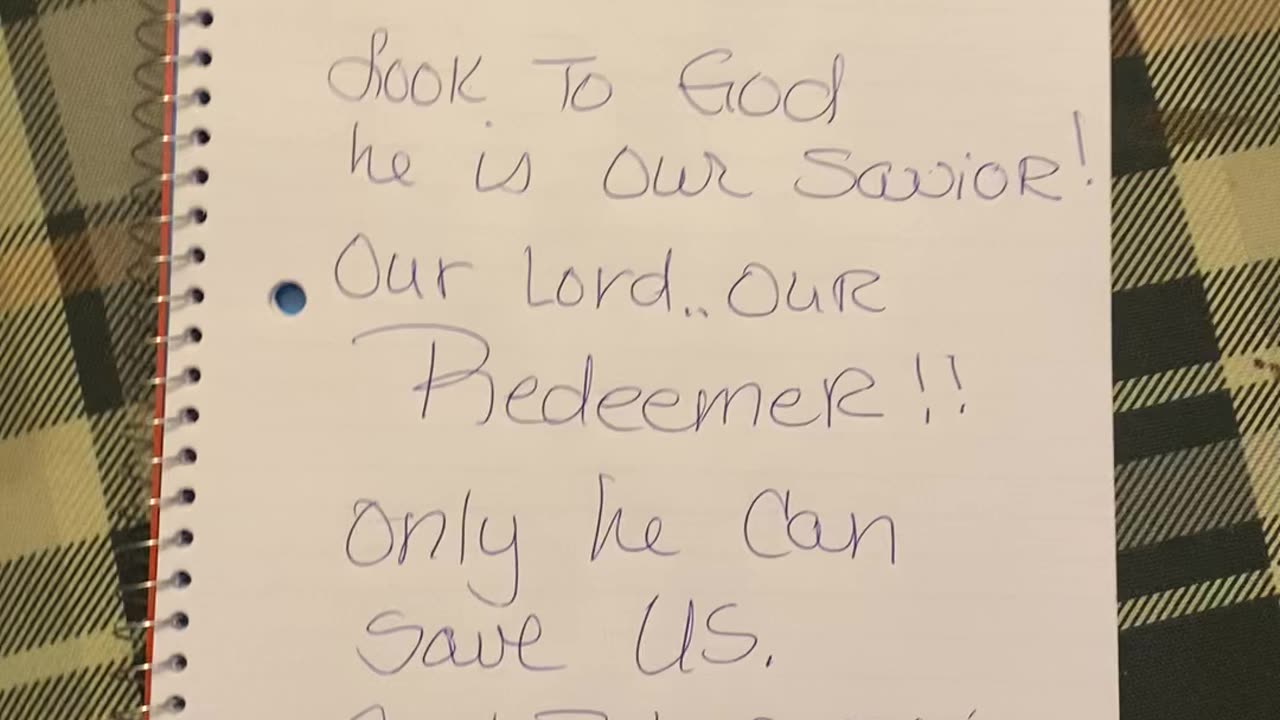 Look To God
he is our Savior!
Our Lord.. OUR
Redeemer!!
only he Can
save US.